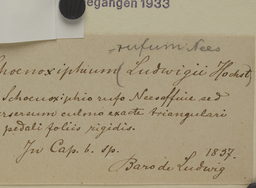 egangen 1933
rufum Nees
hoenoxiphium (Ludwigii Hochst)
Schoenoxiphio rufo Nees affine sed
verserum culmo exacte triangulari
pedali foliis rigidis.
In Cap. b. sp.
1837.
Baro de Ludwig